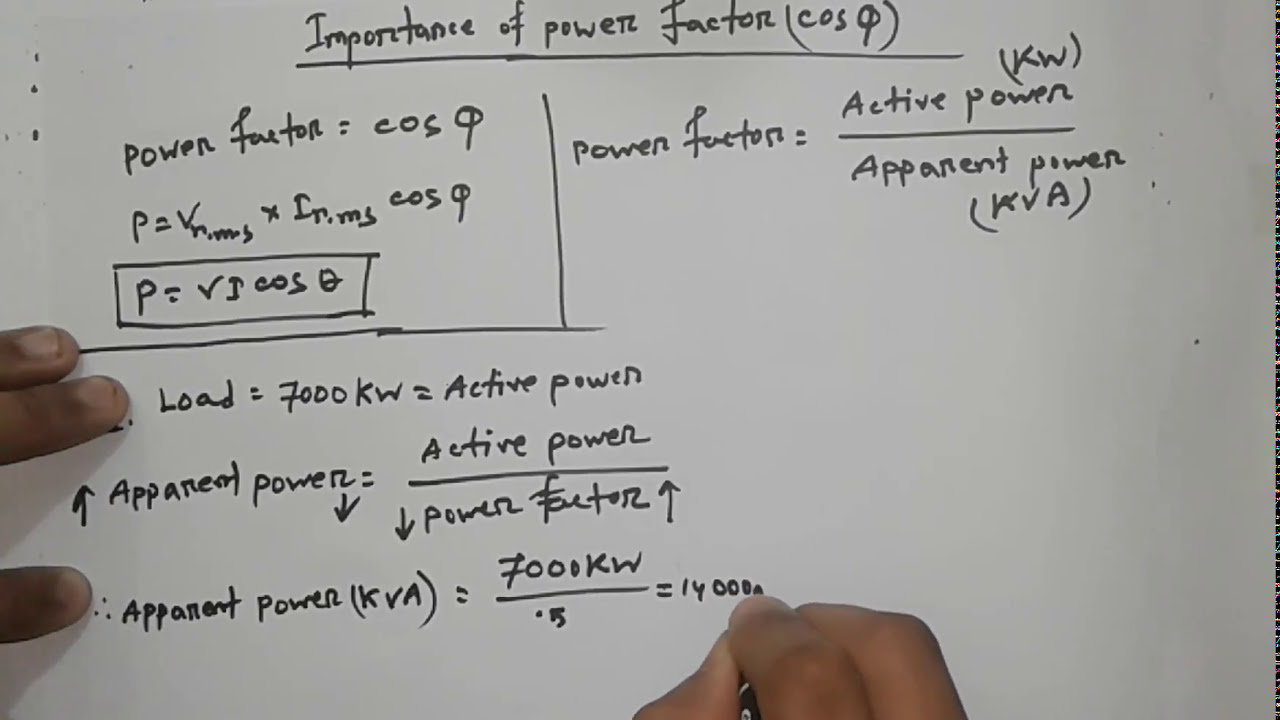 Importance of power factor (cos φ)
power factor = cos φ
P = Vr.m.s × Ir.m.s cos φ
P = VI cos θ
(KW)
power factor = Active power / Apparent power
(KVA)
Load = 7000 KW = Active power
↑ Apparent power ↓ = Active power / ↓ power factor ↑
∴ Apparent power (KVA) = 7000 KW / .5 = 14000